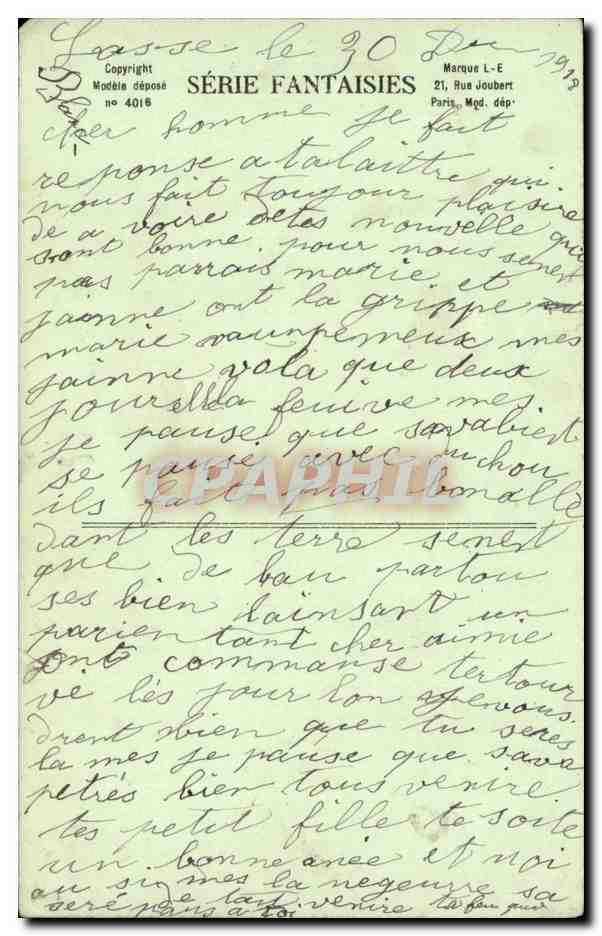 Lasse le 30 1918
Copyright
Modèle déposé
nº 4016
SÉRIE FANTAISIES
Marque L-E
21, Rue Joubert
Paris, Mod. dép.
cher homme je fait
reponse a ta laittre qui
nous fait toujour plaisire
de a voire de tes nouvélle qui
sont bonne. pour nous senest
pas parrais marie et
jainne ont la grippe
marie raunpemeux mes
jainne vola que deux
jour la feuive mes
je pause que savabient
se pausé avec du chou
CPAPHIL
ils fait pas bon allé
dant les terre senest
que de bau partou
ses bien lainsant un
parien tant cher aimie
ont commanse ter tour
vé lés jour lon vous
drent bien que tu seres
la mes je pause que sava
petrés bien tous venire
tes petit fille te soite
un bonne anée et moi
au si mes la negeurre sa
seré de tait venire
pans a toi